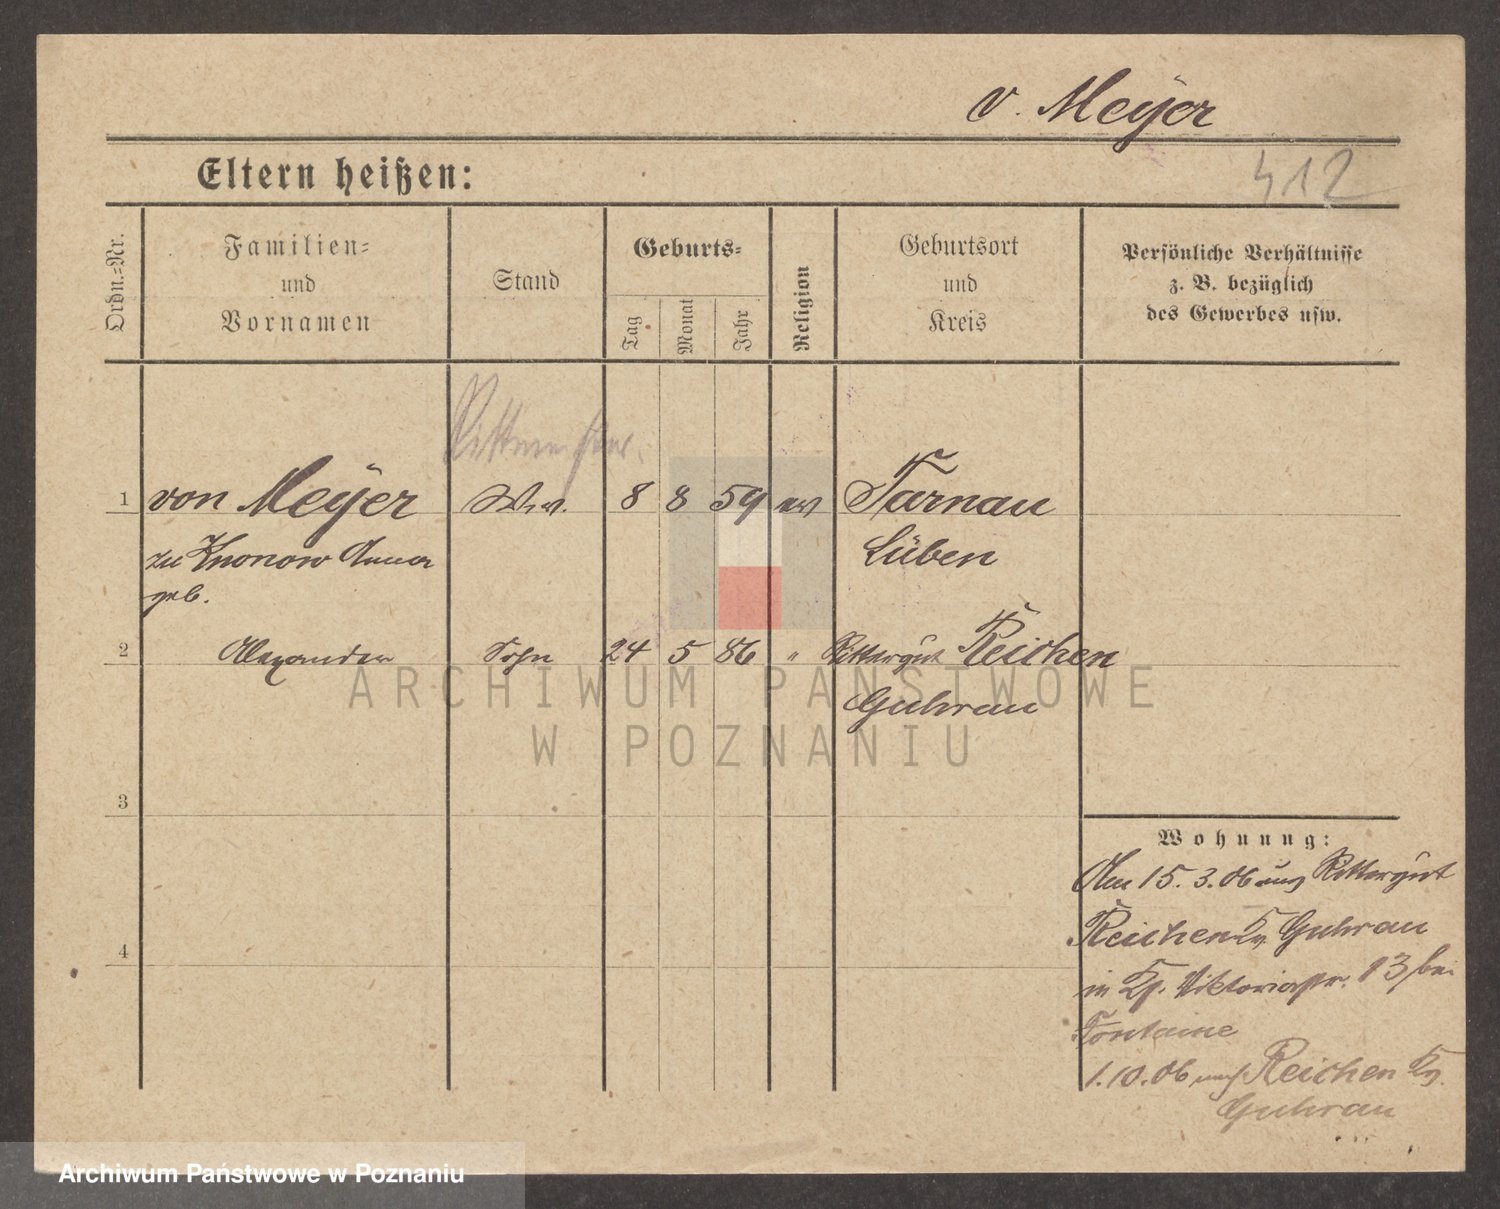 v. Meÿer
412
Eltern heißen:
Ordn.=Nr.
Familien=
und
Vornamen
Stand
Geburts=
Tag
Monat
Jahr
Religion
Geburtsort
und
Kreis
Persönliche Verhältnisse
z. B. bezüglich
des Gewerbes usw.
Rittmeister.
1 von Meÿer Ww. 8 8 59 ev Tarnau
zu Knonow Anna Lüben
geb.
2 Alexander Sohn 24 5 86 " Rittergut Reichen
Guhrau
3
4
Wohnung:
Am 15. 3. 06 aus Rittergut
Reichen Kr. Guhrau
in Viktoriastr. 13 bei
Fontaine
1.10.06 nach Reichen Kr.
Guhrau
ARCHIWUM PAŃSTWOWE
W POZNANIU
Archiwum Państwowe w Poznaniu